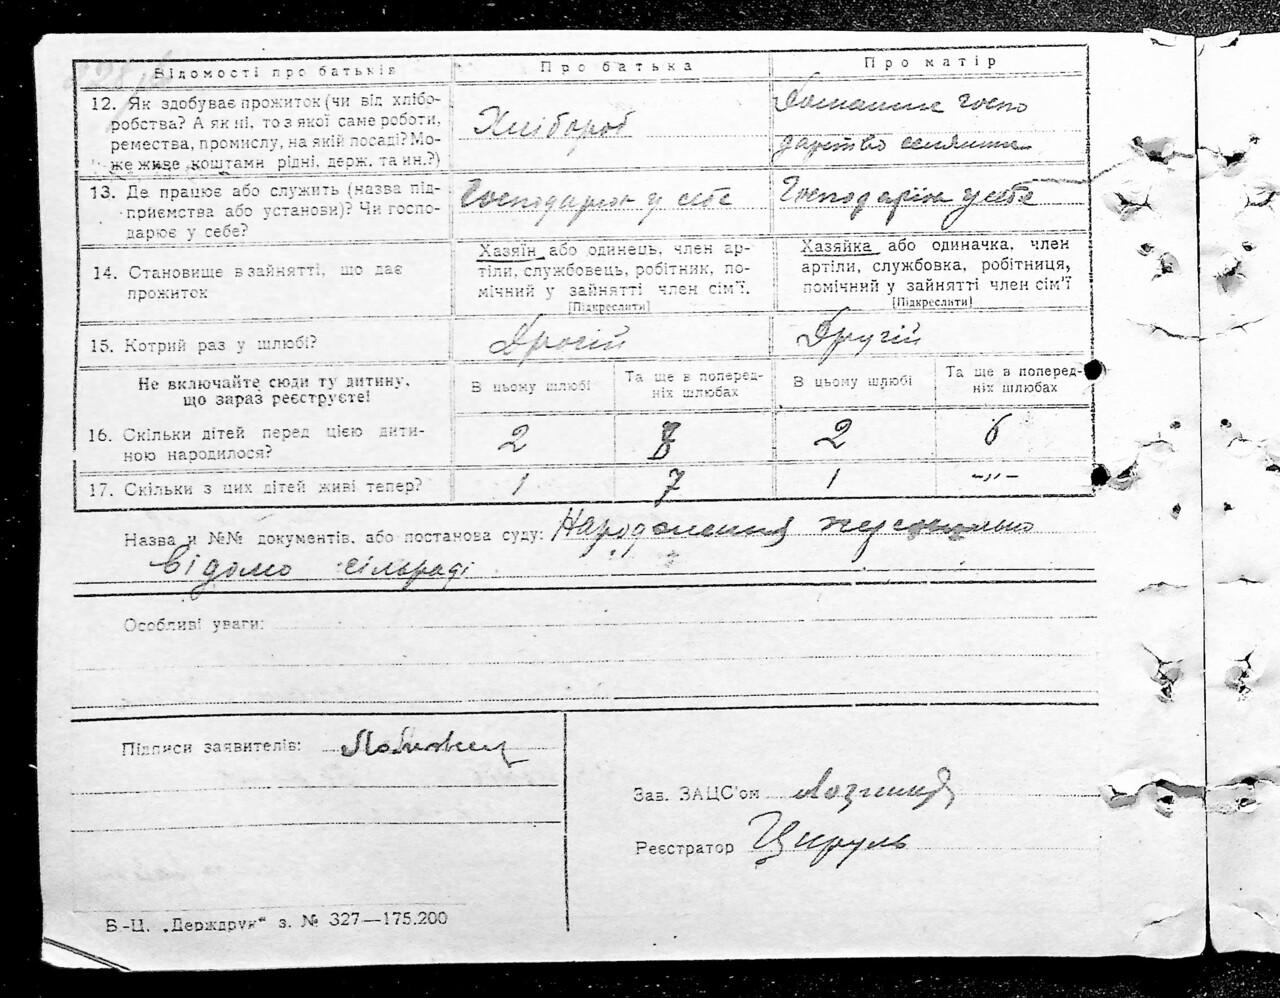 Відомості про батьків
Про батька
Про матір
12. Як здобуває прожиток (чи від хлібо-
робства? А як ні, то з якої саме роботи,
ремества, промислу, на якій посаді? Мо-
же живе коштами рідні, держ. та ин.?)
Хлібороб
Домашнє госпо
дарство селянське
13. Де працює або служить (назва під-
приємства або установи)? Чи госпо-
дарює у себе?
Господарює у себе
Господарює у себе
14. Становище в зайнятті, що дає
прожиток
Хазяїн або одинець, член ар-
тіли, службовець, робітник, по-
мічний у зайнятті член сім'ї.
[Підкреслити]
Хазяйка або одиначка, член
артіли, службовка, робітниця,
помічний у зайнятті член сім'ї
[Підкреслити]
15. Котрий раз у шлюбі?
Другій
Не включайте сюди ту дитину,
що зараз реєструєте!
В цьому шлюбі
Та ще в поперед-
ніх шлюбах
В цьому шлюбі
Та ще в поперед-
ніх шлюбах
16. Скільки дітей перед цією дити-
ною народилося?
2
2
6
17. Скільки з цих дітей живі тепер?
1
7
1
-"-
Назва й №№ документів, або постанова суду: Народження
відомо сільраді
Особливі уваги:
Підписи заявителів:
Зав. ЗАЦС'ом
Реєстратор Цируль
В-Ц. „Держдрук“ з. № 327—175.200